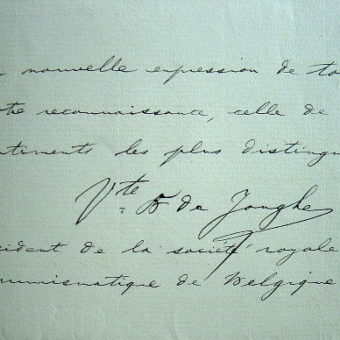 nouvelle expression de to
te reconnaissante, celle de
ntiments les plus distingu
Vte B de Jonghe
sident de la société royale
numismatique de Belgique